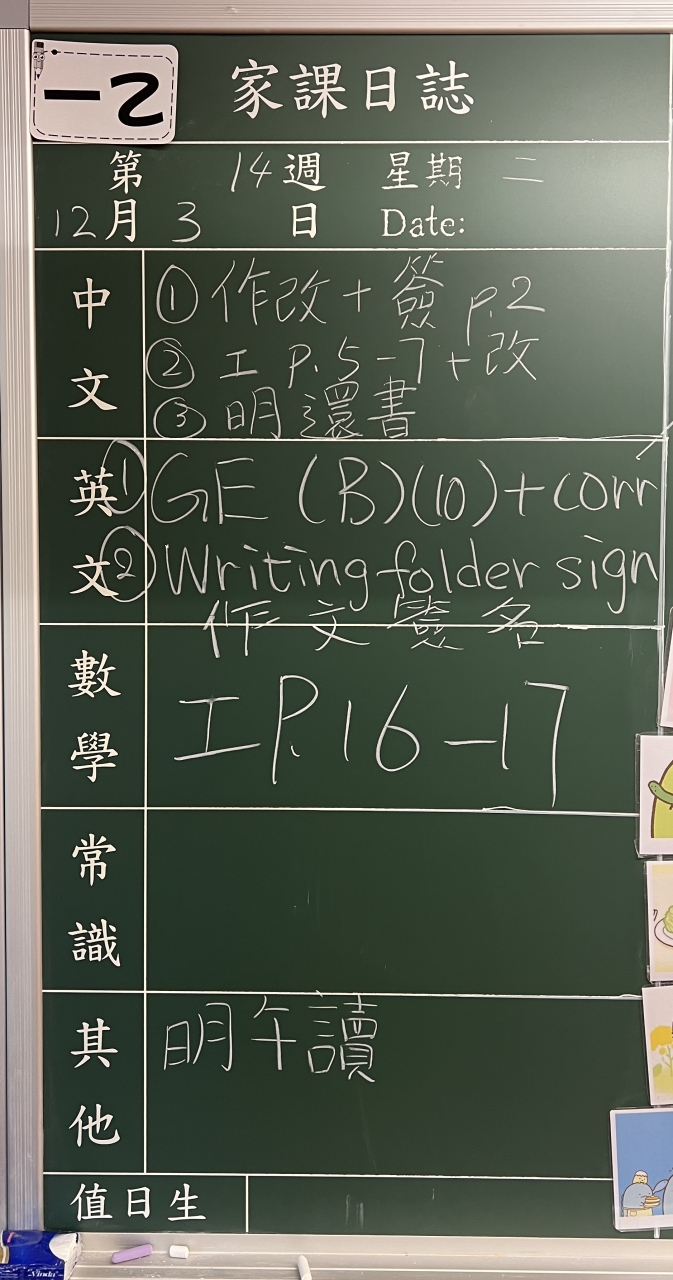 一乙
家課日誌
第 14 週 星期 二
12月 3 日 Date:
中文
① 作改 + 簽 p.2
② 工 P.5-7 + 改
③ 明還書
英文
① GE (B)(10)+corr
② Writing folder sign
作文簽名
數學
工 P.16-17
常識
其他
明午讀
值日生
Vinda